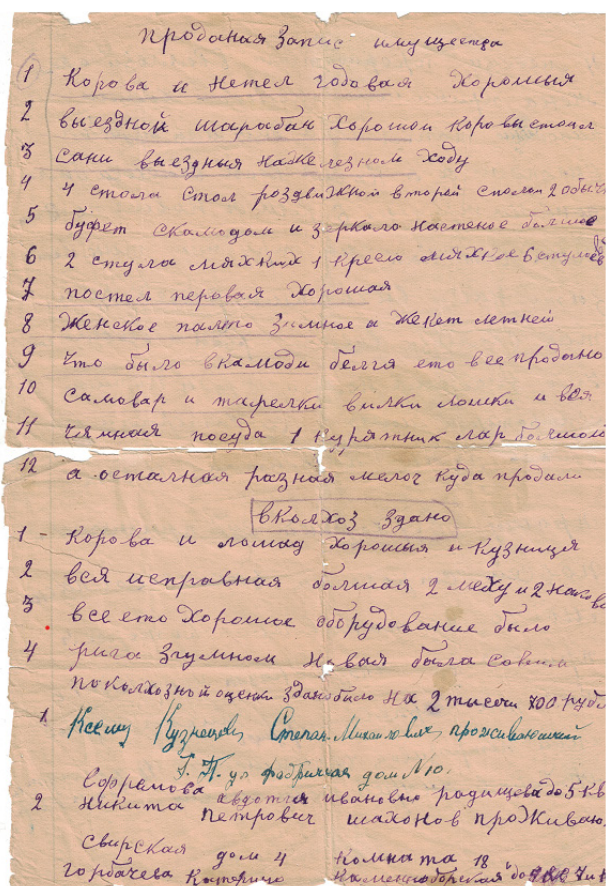 проданая запис имущества
1 Корова и нетел годовая хорошыя
2 выездной шарабан хорошои коровы стоял
3 сани выездныя нажелезном ходу
4 4 стола стол роздвижной второй столои 2 обыч
5 буфет скамодом и зеркало настеное болшое
6 2 стула мяхких 1 кресло мяхкое 6 стулоев
7 постел перовая хорошая
8 женское палто зимное а жекет летней
9 что было вкамоди белгя ето все продано
10 самовар и тарелки вилки лошки и вся
11 чяиная посуда 1 курятник лар болшои
12 а осталная разная мелоч куда продали
вколхоз здано
1 - корова и лошад хорошыя и кузниця
2 вся исправная болшая 2 меху и 2 наков
3 все ето хорошое оборудование было
4 рига згумном новая была совсем
поколхозной оценки зданобыло на 2 тысечи 700 рубл
1. Ксему Кузнецов Степан Михаилович проживающий
Г. П. ул фабричная дом N 10.
Софранова авдотия ивановна радищева до 5 кв
2 никита петрович шахонов прожываю.
свирская дом 4 комната 18
горбачева Катерина